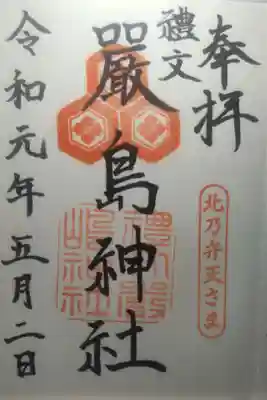 奉拝
禮文
嚴島神社
北乃弁天さま
令和元年五月二日